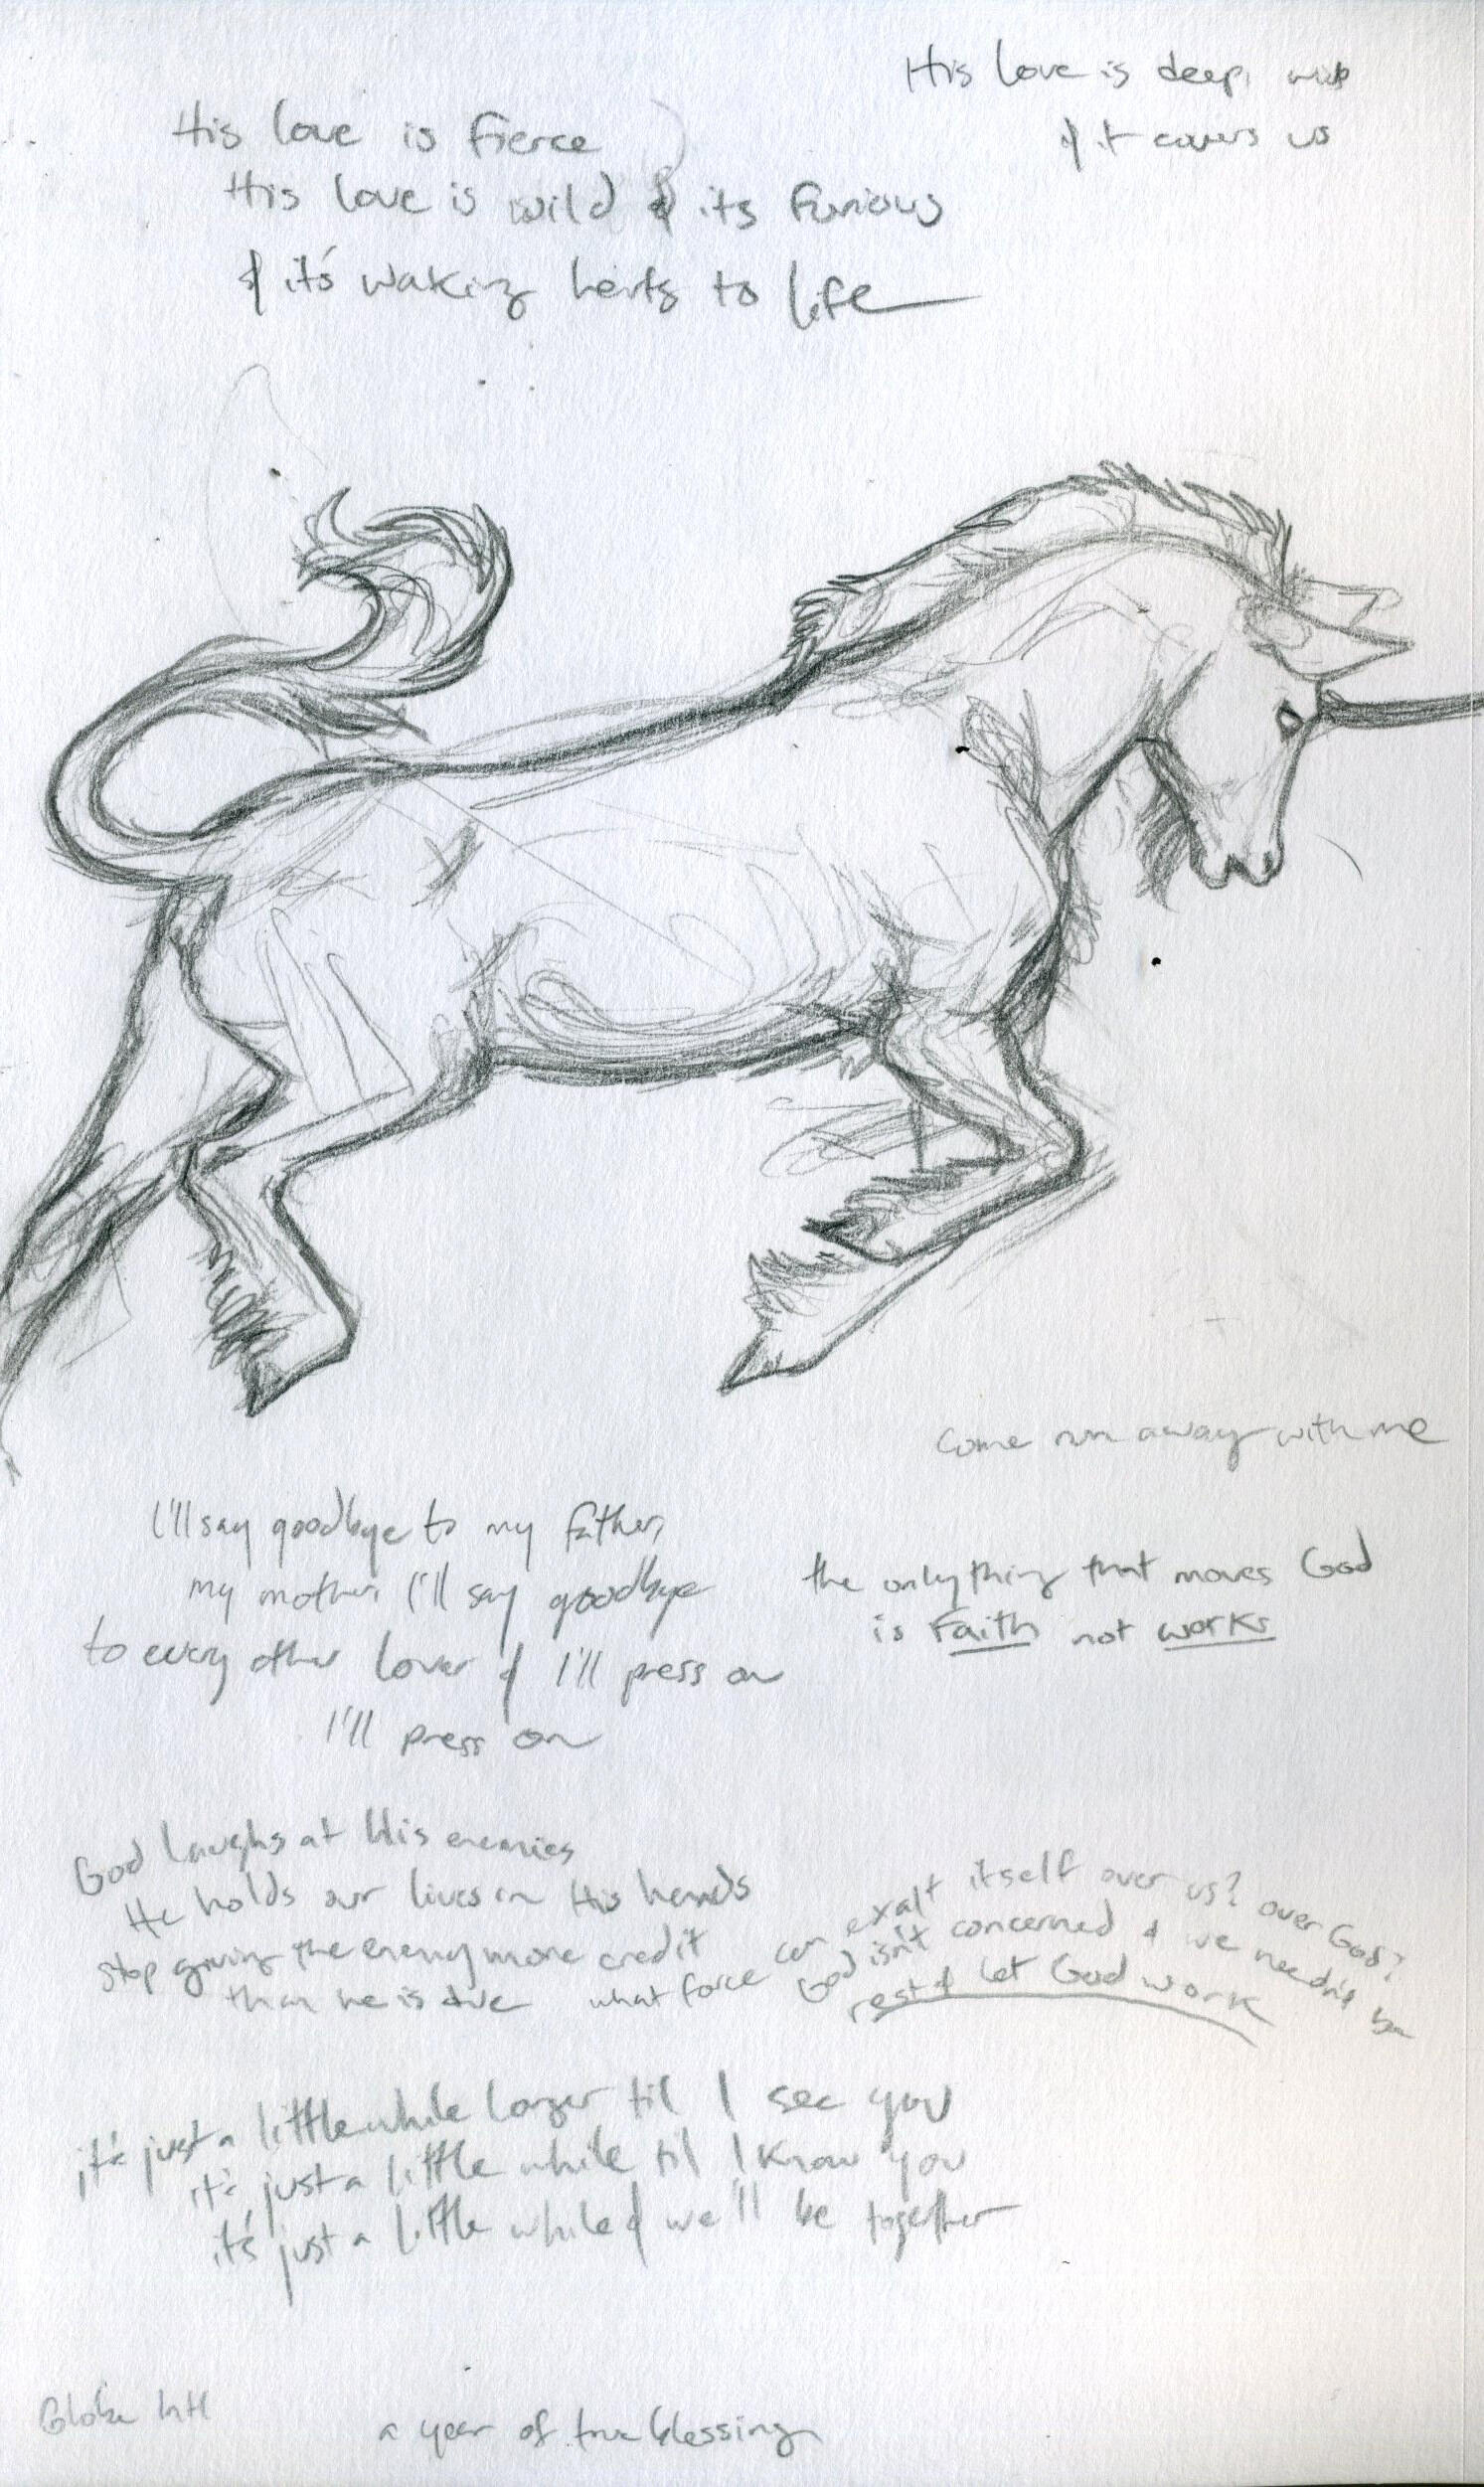 His love is deep,
& it covers us
His love is fierce
His love is wild & its furious
& it's waking herts to life
come run away with me
I'll say goodbye to my father,
my mother, I'll say goodbye
to every other lover & I'll press on
I'll press on
the only thing that moves God
is Faith not works
God laughs at His enemies
He holds our lives in His hands
stop giving the enemy more credit
than he is due what force can exalt itself over us? over God?
God isn't concerned & we needn't be
rest & let God work
it's just a little while longer til I see you
it's just a little while til I know you
it's just a little while & we'll be together
Globe Intl
a year of true blessing